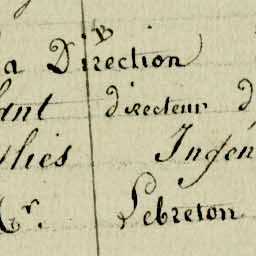 B
a Direction
ant directeur d
lies Ingén
r. Lebreton